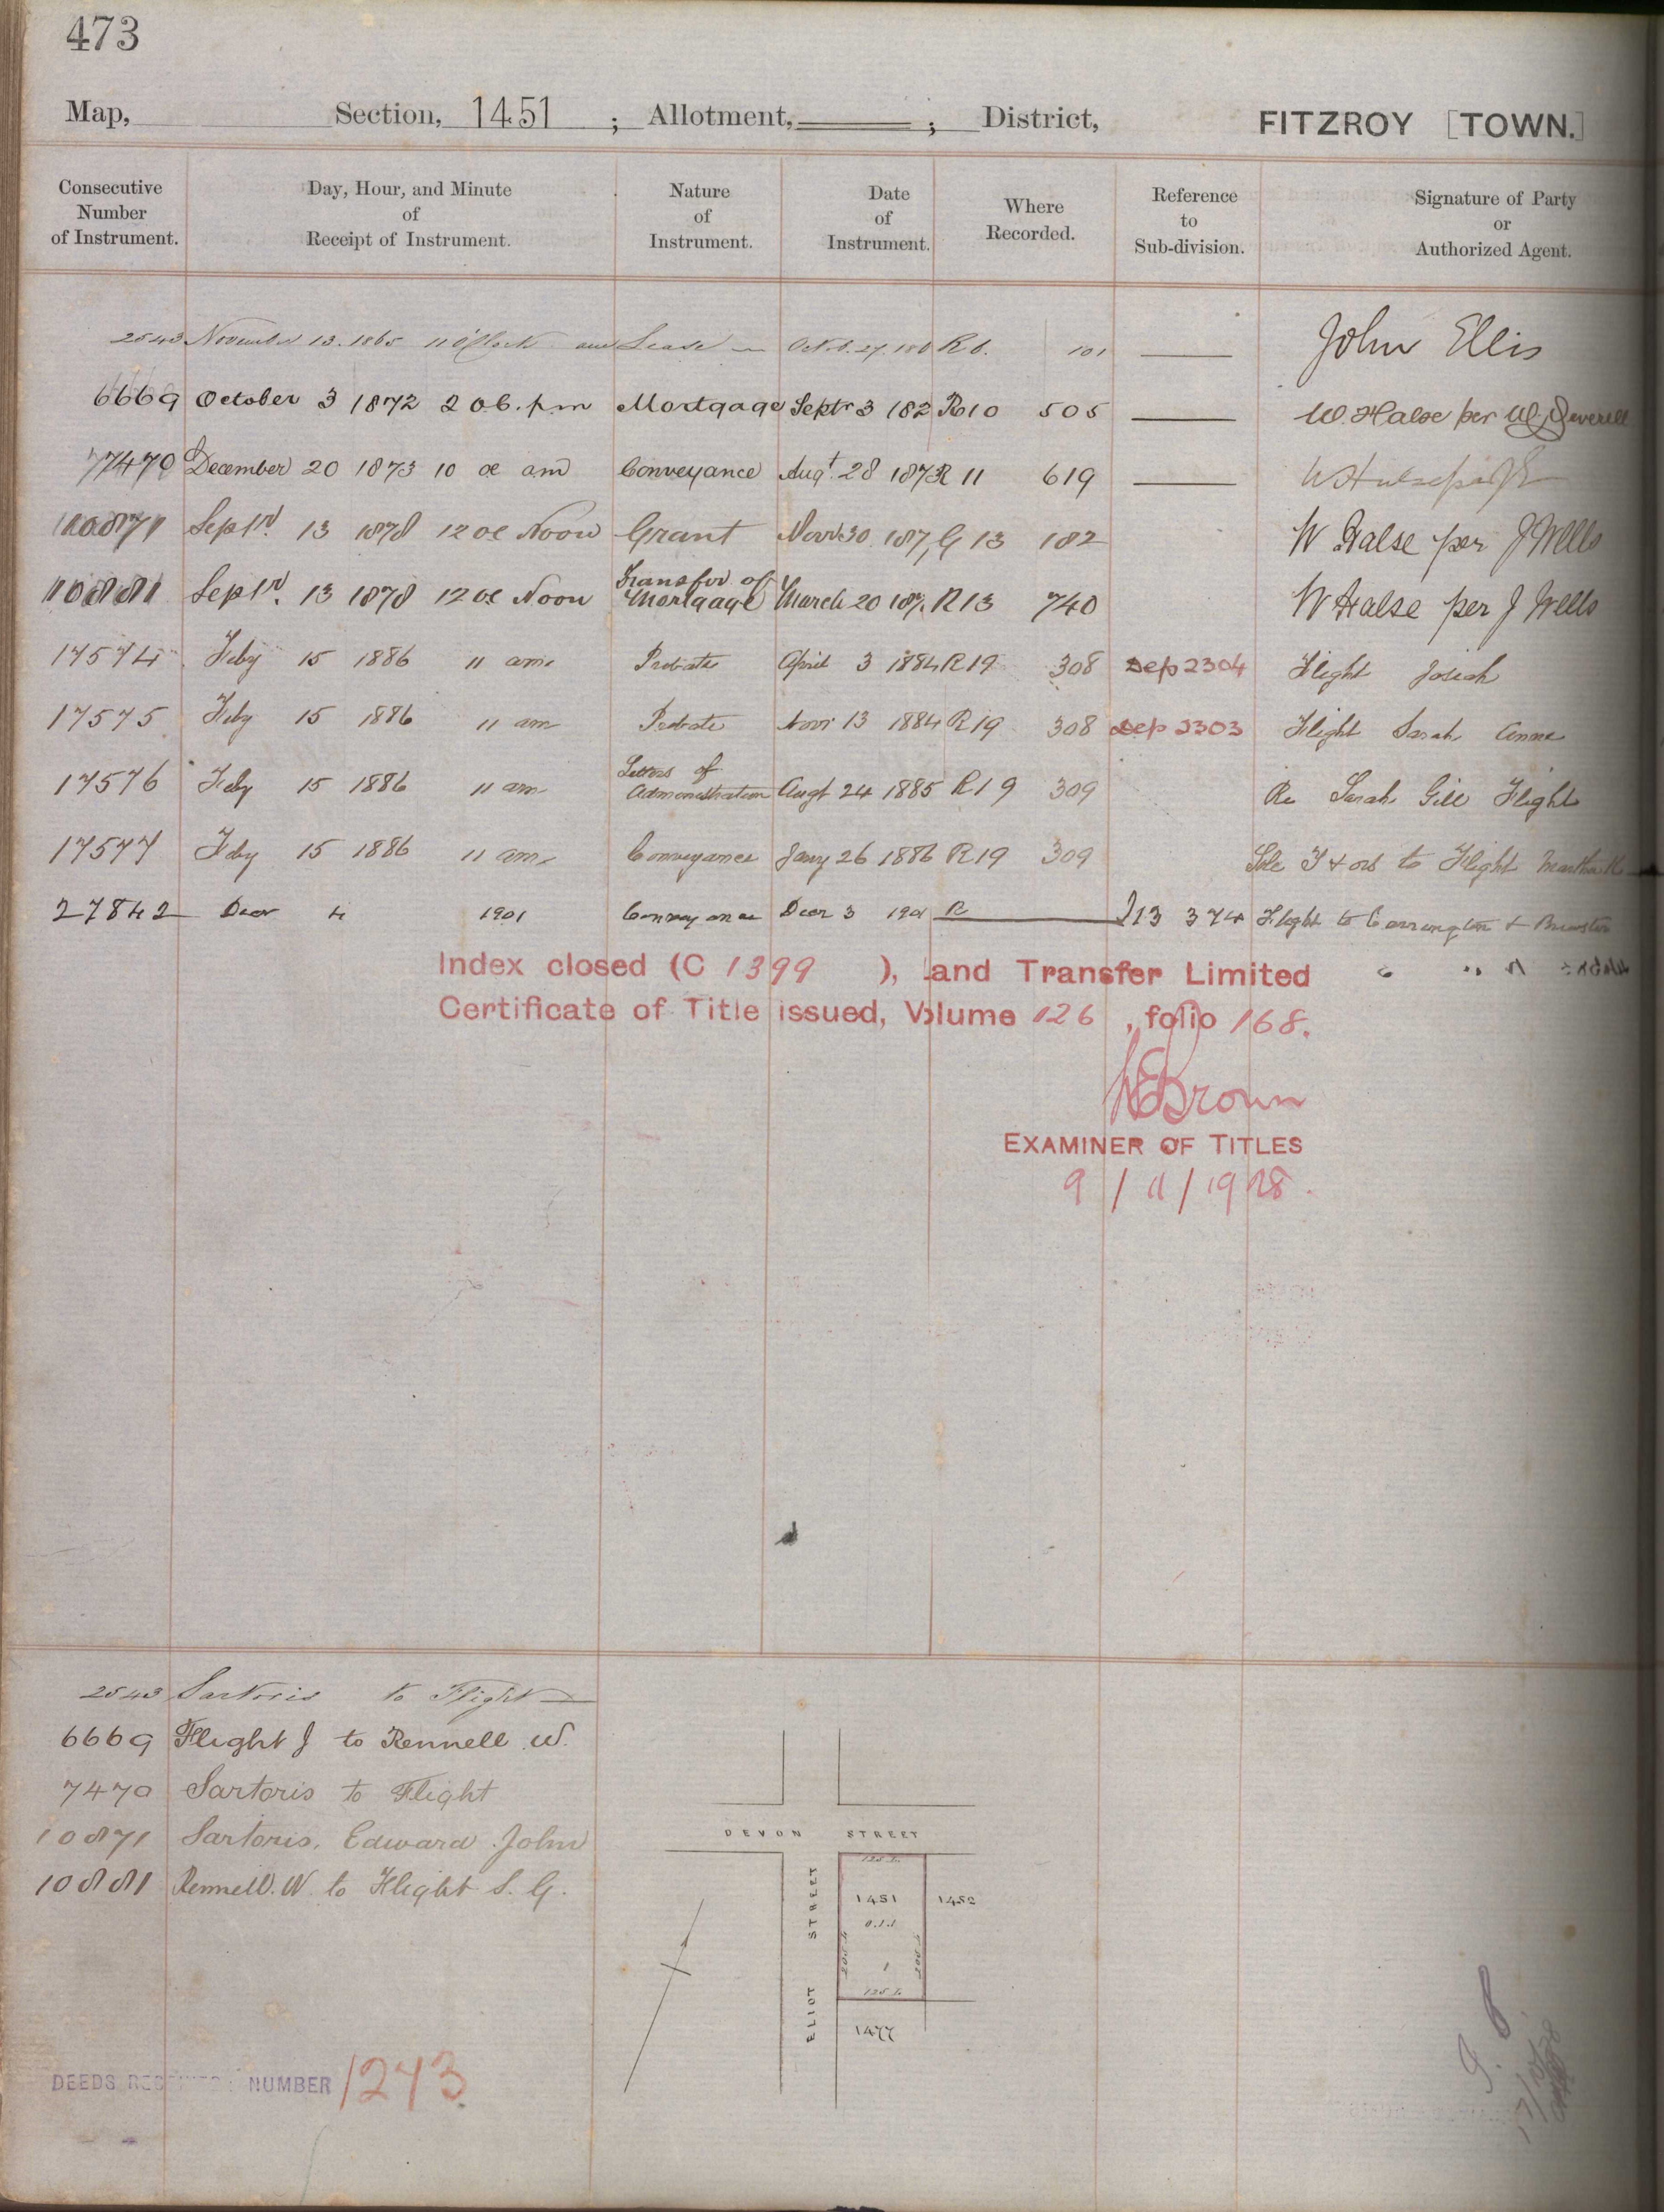 473
Map, Section, 1451 ; Allotment, ; District, FITZROY [TOWN.]
Consecutive Number of Instrument. Day, Hour, and Minute of Receipt of Instrument. Nature of Instrument. Date of Instrument. Where Recorded. Reference to Sub-division. Signature of Party or Authorized Agent.
2543 November 13. 1865 11 O'Clock am Lease Octob. 27. 186 R 6. 101 John Ellis
6669 October 3 1872 2 o.c. p.m Mortgage Septr 3 182 R10 505 W. Halse per W.
7470 December 20 1873 10 oc am Conveyance Augt. 28 1873 R 11 619
10871 Septr. 13 1878 12 oc Noon Grant Novr 30 187 G 13 182 W Halse per J Wells
10881 Septr. 13 1878 12 oc Noon Transfer of Mortgage March 20 187 R 13 740 W Halse per J Wells
17574 Feby 15 1886 11 am. Probate April 3 1884 R19 308 Dep 2304 Flight Josiah
17575 Feby 15 1886 11 am Probate Novr 13 1884 R19 308 Dep 2303 Flight Sarah Anne
17576 Feby 15 1886 11 am Letters of Administration Augt 24 1885 R19 309 Re Sarah Gill Flight
17577 Feby 15 1886 11 am. Conveyance Jany 26 1886 R19 309 to Flight Martha
27842 Decr 4 1901 Conveyance Decr 3 1901 R 213 374 Flight to Carrington & Brewster
Index closed (C 1399 ), Land Transfer Limited
Certificate of Title issued, Volume 126 , folio 168.
Brown
EXAMINER OF TITLES
9 / 11 / 1928.
2543 Sartoris to Flight
6669 Flight J to Rennell W.
7470 Sartoris to Flight
10871 Sartoris, Edward John
10881 Rennell. W. to Flight S. G.
DEVON STREET
125 L.
STREET
1451
1452
0.1.1
205 L
205 L
1
125 L.
ELIOT
1477
DEEDS REGISTER NUMBER 1243